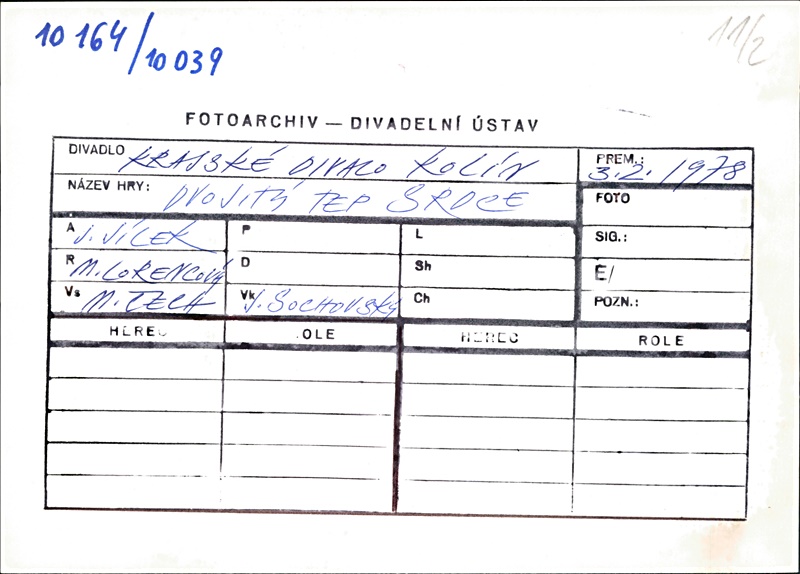 10 164/10 039
11/2
FOTOARCHIV — DIVADELNÍ ÚSTAV
DIVADLO KRAJSKÉ DIVALO KOLÍN
PREM.: 3.2. 1978
NÁZEV HRY: DVOJITÝ TEP SRDCE
FOTO
A J. JÍLEK
P
L
SIG.:
R M. LORENCOVÁ
D
Sh
E/
Vs M. ČECH
Vk J. SOCHOVSKÝ
Ch
POZN.:
HEREC
.OLE
HEREC
ROLE